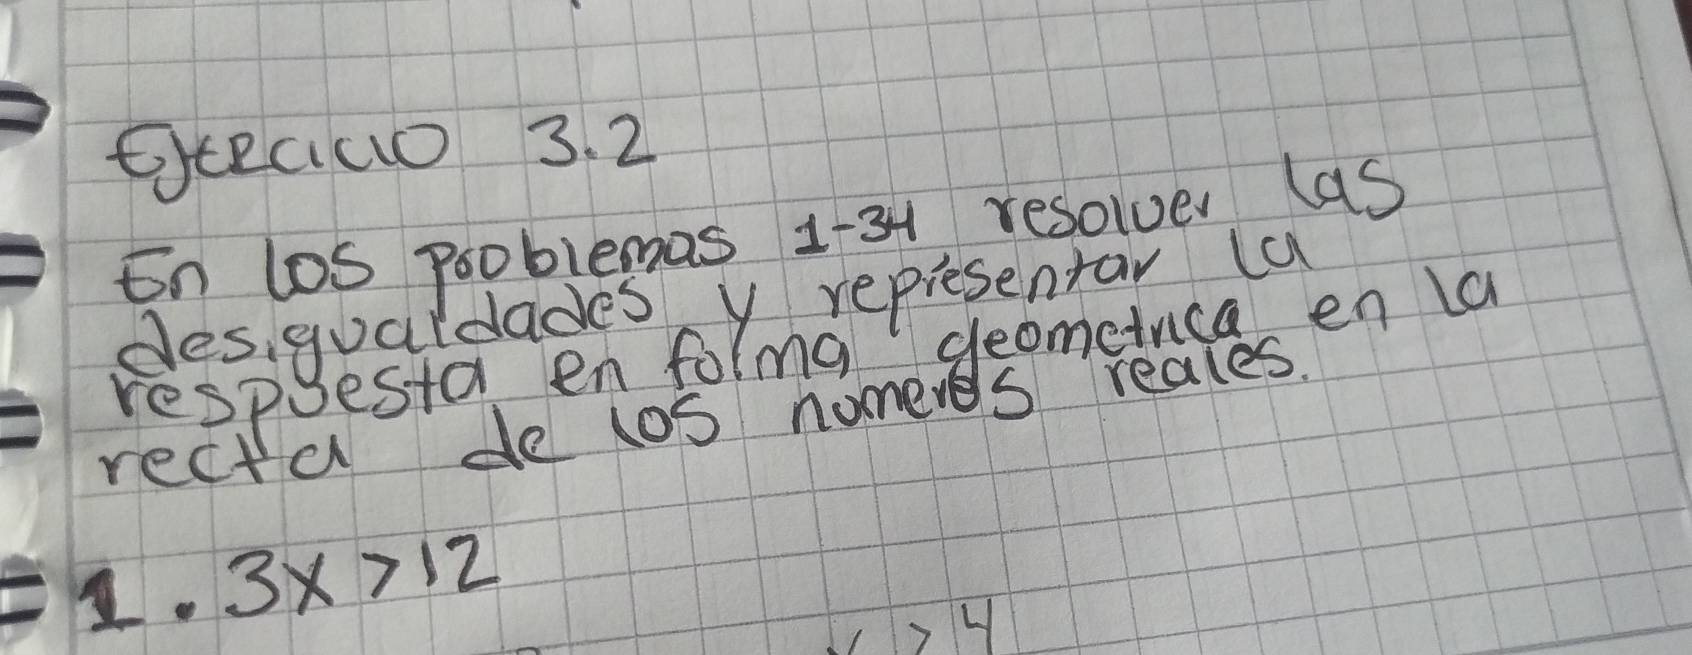 Ejercicio 3.2
En los problemas 1-34 resolver las
desigualdades y representar la
respuesta en forma geometrica en la
recta de los numeros reales.
1. 3x > 12
x > 4